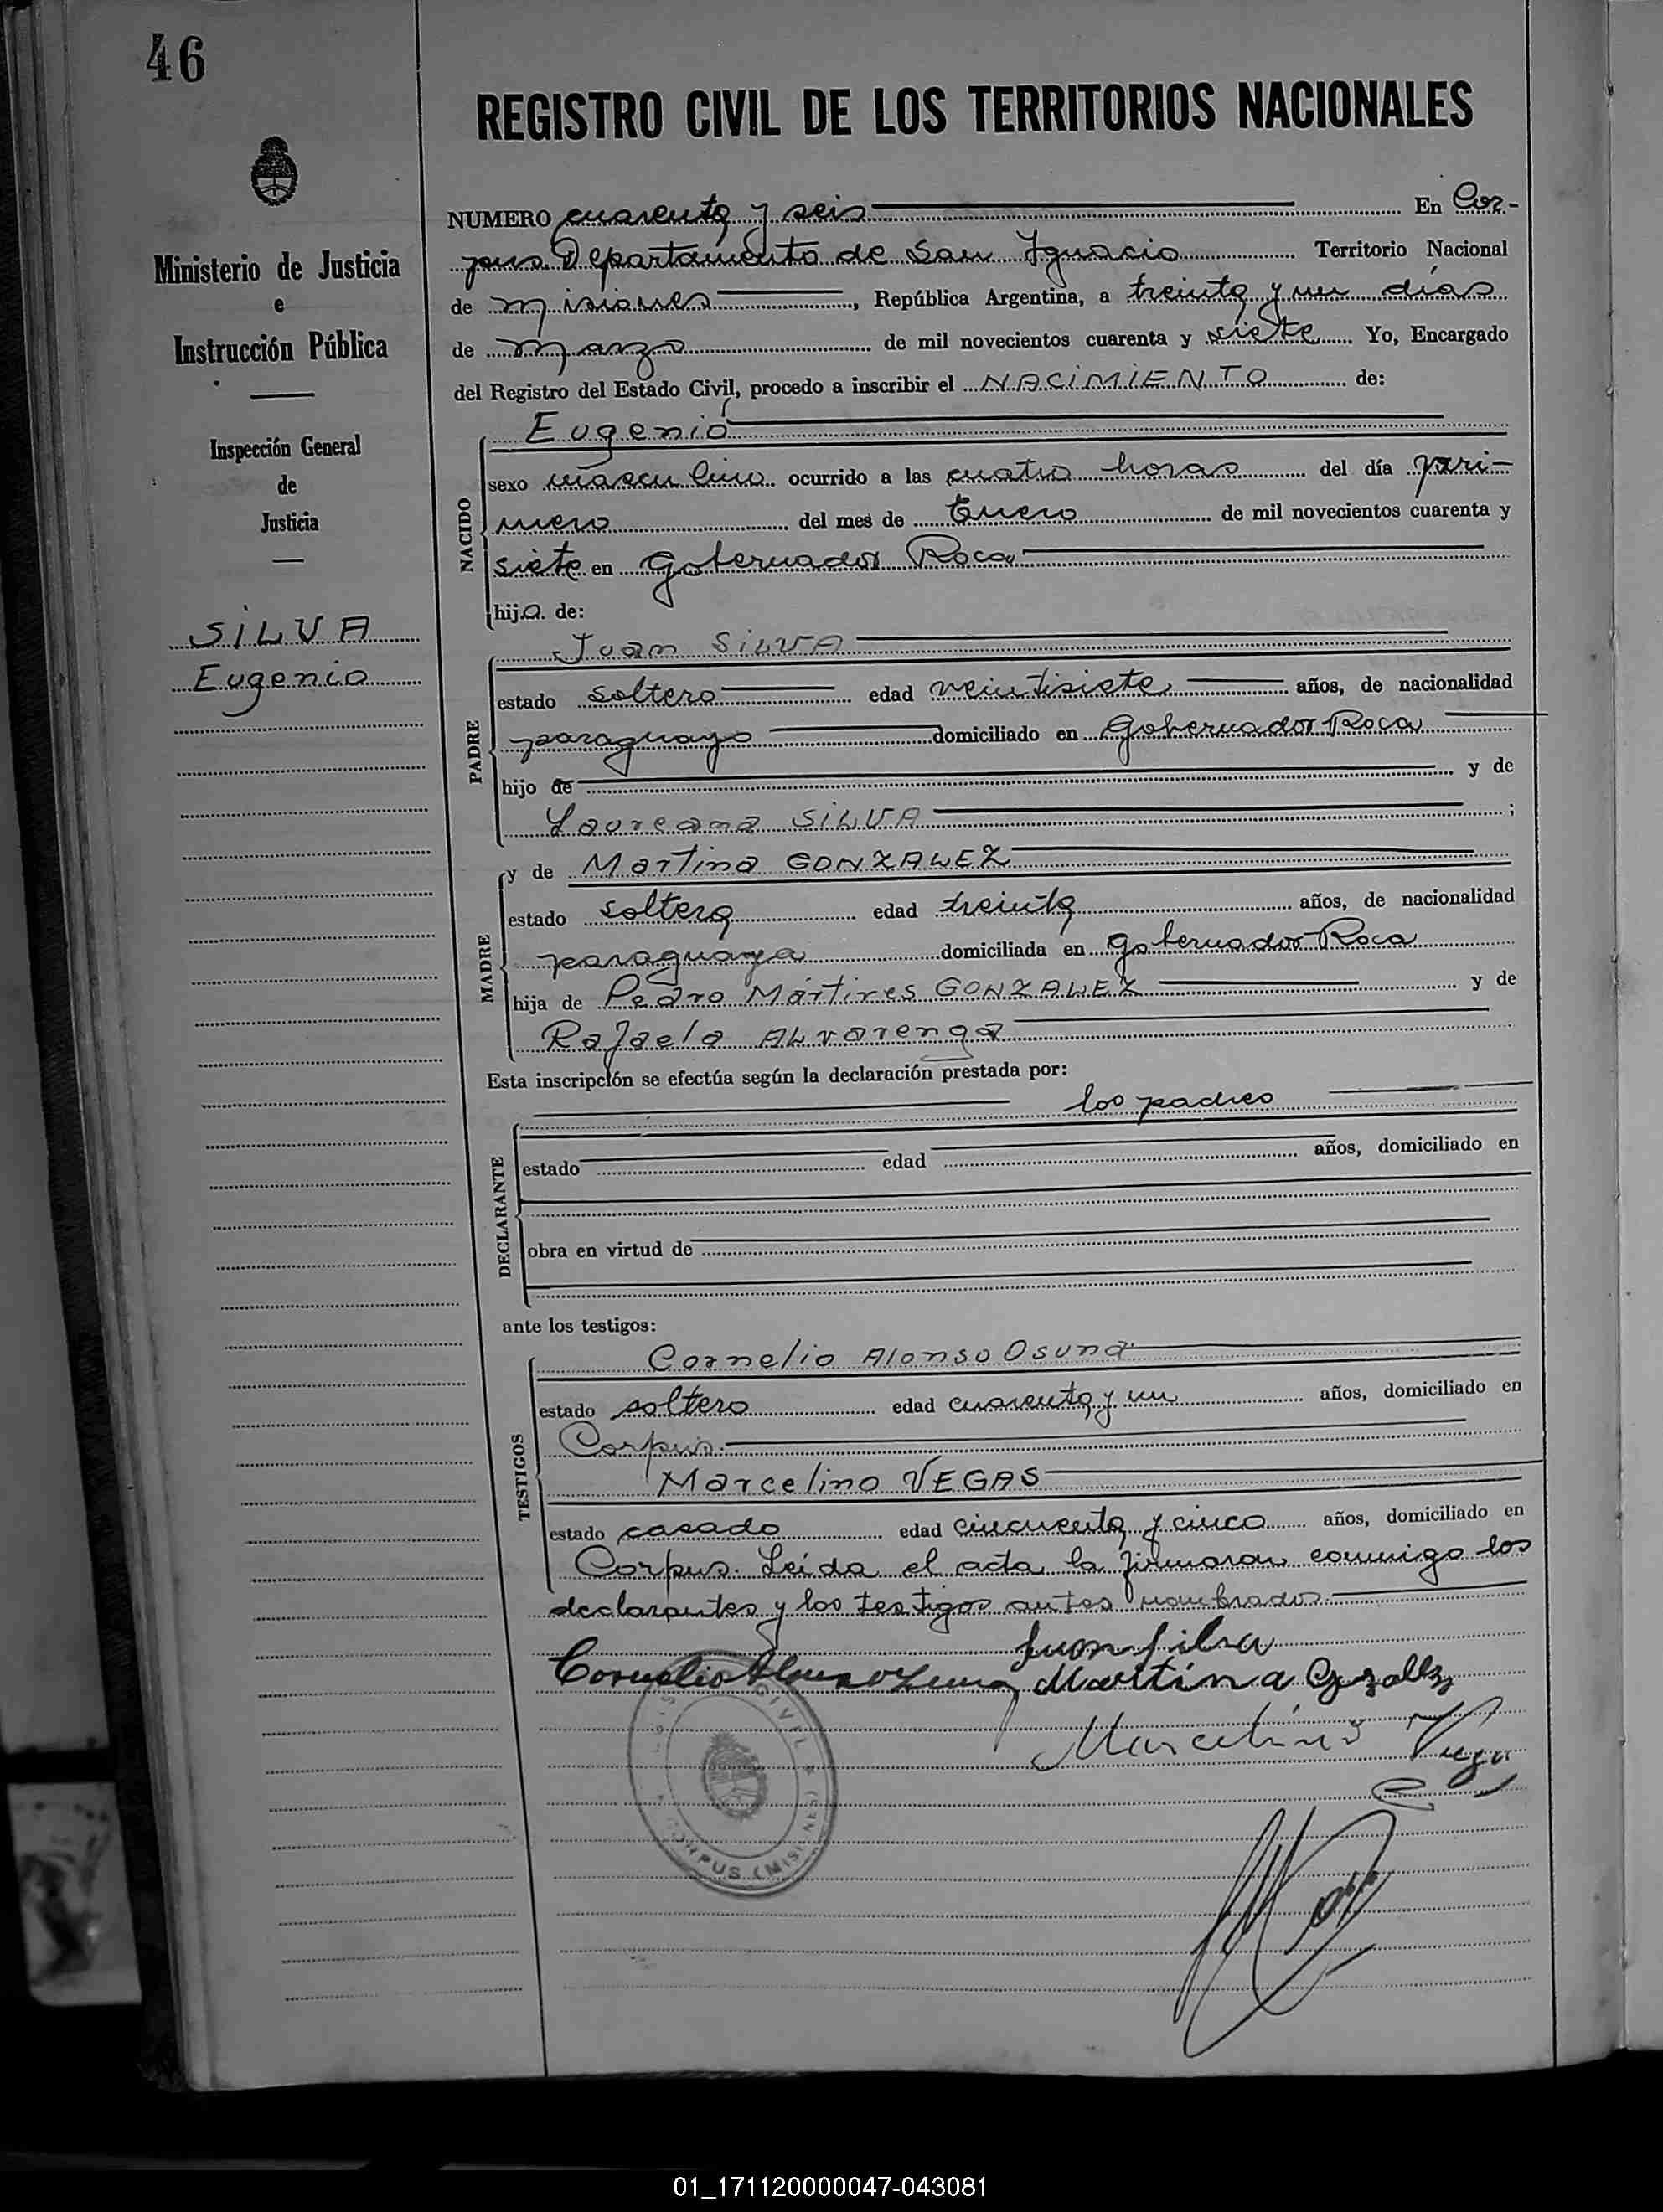 46
REGISTRO CIVIL DE LOS TERRITORIOS NACIONALES
Ministerio de Justicia
e
Instrucción Pública
Inspección General
de
Justicia
SILVA
Eugenio
NUMERO cuarenta y seis En Cor-
pus Departamento de San Ignacio Territorio Nacional
de Misiones, República Argentina, a treinta y un días
de Marzo de mil novecientos cuarenta y siete Yo, Encargado
del Registro del Estado Civil, procedo a inscribir el NACIMIENTO de:
NACIDO
Eugenio
sexo masculino ocurrido a las cuatro horas del día pri-
mero del mes de Enero de mil novecientos cuarenta y
siete en Gobernador Roca
hijo de:
PADRE
Juan SILVA
estado soltero edad veintisiete años, de nacionalidad
paraguayo domiciliado en Gobernador Roca
hijo de y de
Laureana SILVA ;
MADRE
y de Martina GONZALEZ
estado soltera edad treinta años, de nacionalidad
paraguaya domiciliada en Gobernador Roca
hija de Pedro Mártires GONZALEZ y de
Rafaela ALvarenga
Esta inscripción se efectúa según la declaración prestada por:
los padres
DECLARANTE
estado edad años, domiciliado en
obra en virtud de
ante los testigos:
TESTIGOS
Cornelio Alonso Osuna
estado soltero edad cuarenta y un años, domiciliado en
Corpus.
Marcelino VEGAS
estado casado edad cincuenta y cinco años, domiciliado en
Corpus. Leída el acta, la firmaron conmigo los
declarantes y los testigos antes nombrados.
Juan Silva
Cornelio Alonso Osuna Martina Gzallz
Marcelino Vega
CIVIL
CORPUS (MISIONES)
01_171120000047-043081